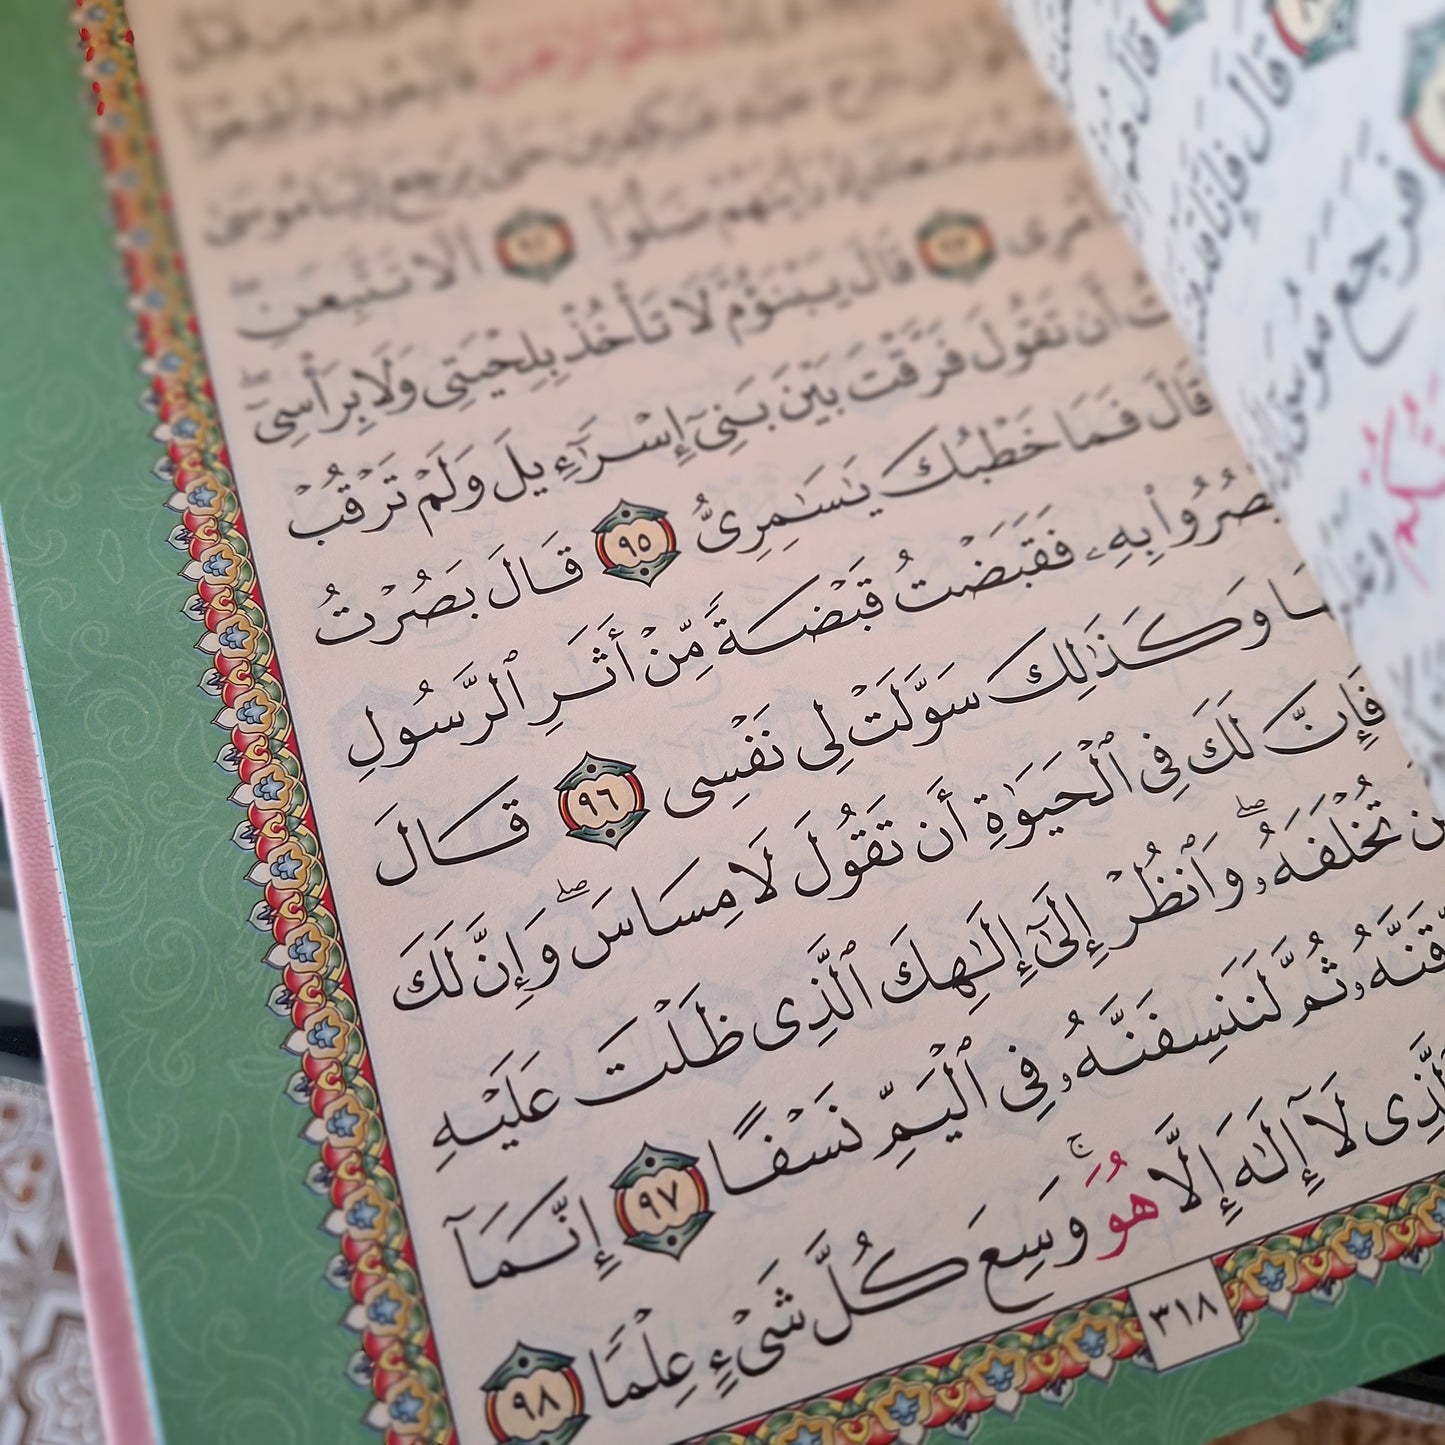 فَٱتَّبِعُونِى وَأَطِيعُوٓا۟
عَلَيْهِ عَٰكِفِينَ حَتَّىٰ يَرْجِعَ إِلَيْنَا مُوسَىٰ
رَأَيْتَهُمْ ضَلُّوٓا۟ ٩٢ أَلَّا تَتَّبِعَنِ ۖ
أَمْرِى ٩٣ قَالَ يَبْنَؤُمَّ لَا تَأْخُذْ بِلِحْيَتِى وَلَا بِرَأْسِىٓ ۖ
أَن تَقُولَ فَرَّقْتَ بَيْنَ بَنِىٓ إِسْرَٰٓءِيلَ وَلَمْ تَرْقُبْ
قَالَ فَمَا خَطْبُكَ يَٰسَٰمِرِىُّ ٩٥ قَالَ بَصُرْتُ
بِهِۦ فَقَبَضْتُ قَبْضَةً مِّنْ أَثَرِ ٱلرَّسُولِ
وَكَذَٰلِكَ سَوَّلَتْ لِى نَفْسِى ٩٦ قَالَ
فَإِنَّ لَكَ فِى ٱلْحَيَوٰةِ أَن تَقُولَ لَا مِسَاسَ ۖ وَإِنَّ لَكَ
تُخْلَفَهُۥ ۖ وَٱنظُرْ إِلَىٰٓ إِلَٰهِكَ ٱلَّذِى ظَلْتَ عَلَيْهِ
ثُمَّ لَنَنسِفَنَّهُۥ فِى ٱلْيَمِّ نَسْفًا ٩٧ إِنَّمَآ
لَآ إِلَٰهَ إِلَّا هُوَ ۚ وَسِعَ كُلَّ شَىْءٍ عِلْمًا ٩٨
٣١٨
قَالَ فَإِنَّا
فَرَجَعَ مُوسَىٰٓ